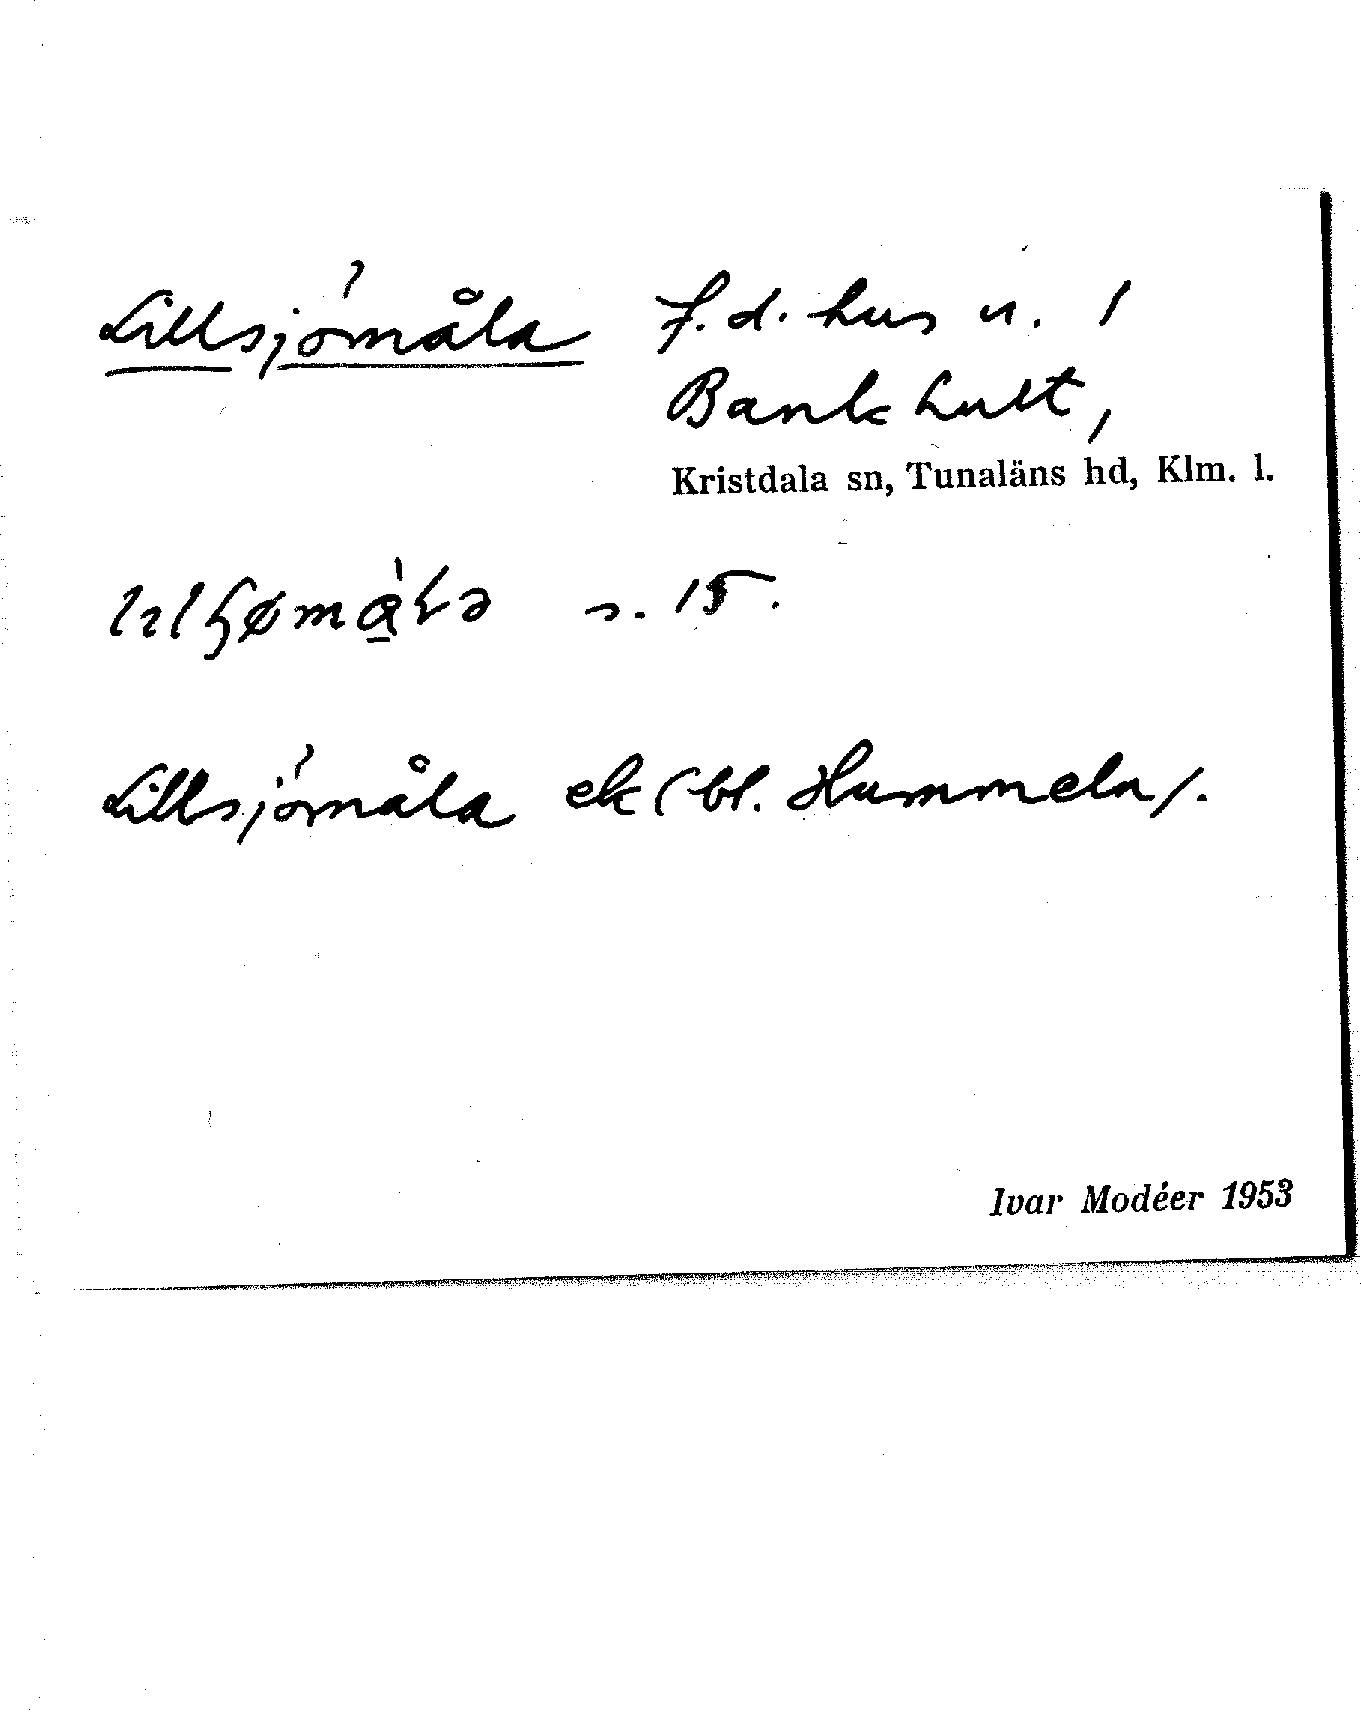 Lillsjömåla f.d. hus u. 1
Bankhult,
Kristdala sn, Tunaläns hd, Klm. l.
s. 15.
Lillsjömåla ek (bl. Hummeln).
Ivar Modéer 1953